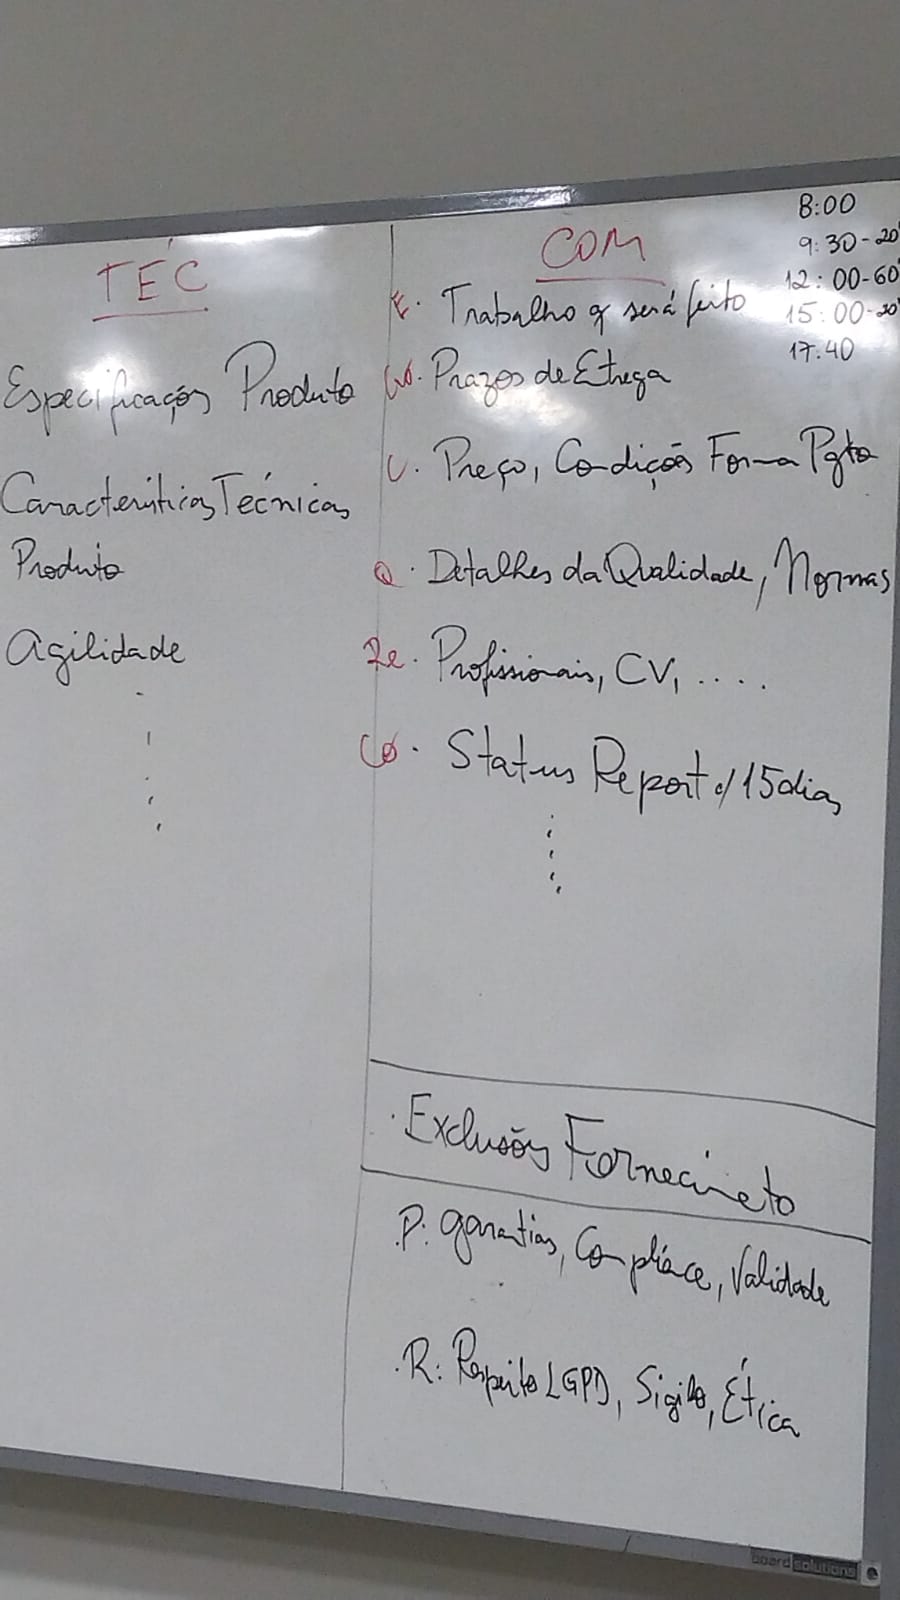 TÉC
Especificações Produto
Características Técnicas
Produto
Agilidade
COM
E. Trabalho q será feito
Prazos de Etrega
C. Preço, Condições Forma Pgto
Q. Detalhes da Qualidade, Normas
Re. Profissionais, CV, ....
Co. Status Report c/ 15 dias
8:00
9:30-20'
12:00-60'
15:00-20'
17:40
. Exclusões Fornecimeto
.P: garantias, Compliace, Validade
.R: Respeito LGPD, Sigilo, Ética
board solutions